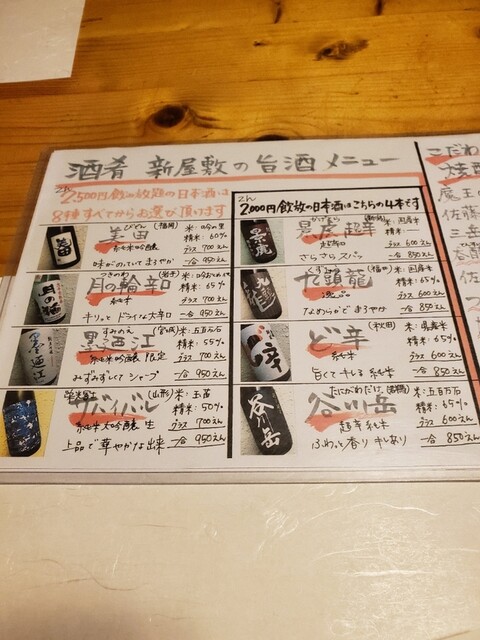 酒肴 新屋敷の旨酒メニュー
2,500円飲み放題の日本酒は
8種すべてからお選び頂けます
美田
びでん
(福岡)
純米吟醸
味がのっていてまろやか
米:吟の里
精米:60%
グラス 700えん
一合 950えん
つきのわ
(岩手)
月の輪 辛口
純米
キリッとドライな大辛口
精米:65%
グラス 700えん
一合 950えん
すみのえ
(宮城)
墨廼江
純米吟醸 限定
みずみずしくてシャープ
米:五百万石
精米:55%
グラス 700えん
一合 950えん
(山形)
バイバル
純米大吟醸 生
上品で華やかな出来
米:玉苗
精米:50%
グラス 700えん
一合 950えん
2,000円飲放の日本酒はこちらの4本です
かげとら
(新潟)
景虎 超辛
さらさらスパッ
精米:
グラス 600えん
一合 850えん
(福井)
九頭龍
逸品
なめらかでまろやか
精米:65%
グラス 600えん
一合 850えん
(秋田)
ど辛
純米
旨くてキレる純米
精米:65%
グラス 600えん
一合 850えん
たにがわだけ
谷川岳
超辛純米
ふわっと香りキレあり
米:五百万石
精米:65%
グラス 600えん
一合 850えん
こだわ
焼酎
魔王
佐藤
三岳
佐